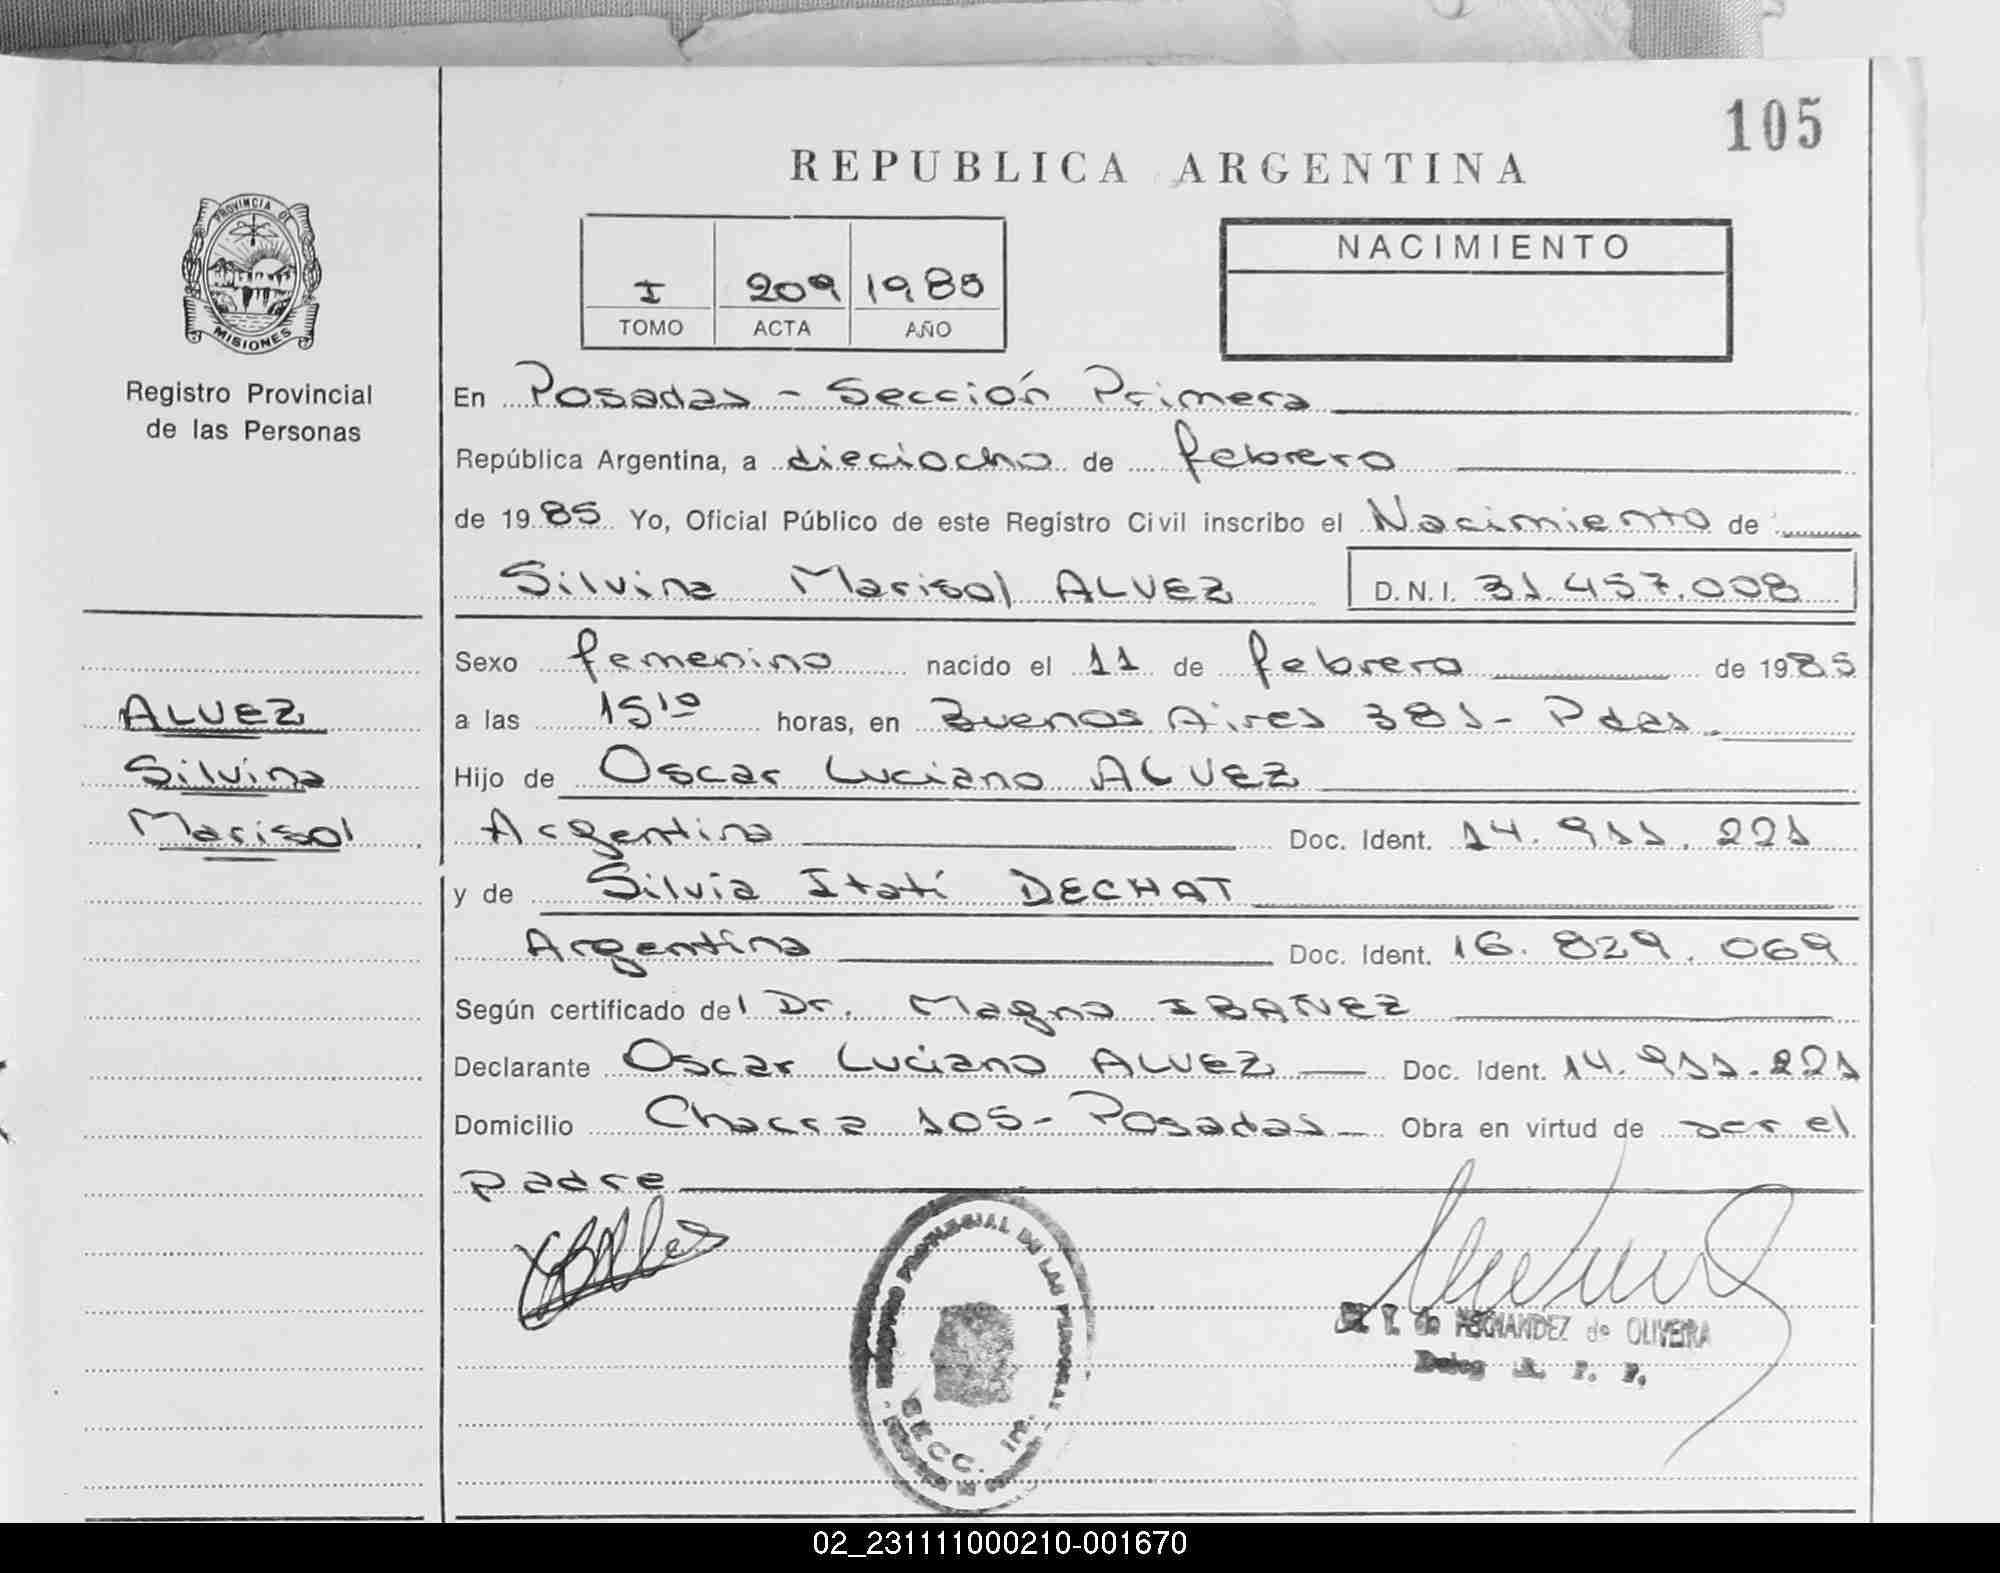 105
REPUBLICA ARGENTINA
PROVINCIA DE
MISIONES
Registro Provincial
de las Personas
I 209 1985
TOMO ACTA AÑO
NACIMIENTO
En Posadas - Sección Primera
República Argentina, a dieciocho de febrero
de 1985 Yo, Oficial Público de este Registro Civil inscribo el Nacimiento de
Silvina Marisol ALVEZ D.N.I. 31.457.008
Sexo femenino nacido el 11 de febrero de 1985
ALVEZ
a las 15¹⁰ horas, en Buenos Aires 381- Pdas.
Silvina
Hijo de Oscar Luciano ALVEZ
Marisol
Argentina Doc. Ident. 14.911.221
y de Silvia Itatí DECHAT
Argentina Doc. Ident. 16.829.069
Según certificado del Dr. Magno IBAÑEZ
Declarante Oscar Luciano ALVEZ — Doc. Ident. 14.911.221
Domicilio Chacra 105- Posadas - Obra en virtud de ser el
padre
REGISTRO PROVINCIAL DE LAS PERSONAS
SECC. 1ra.
de HERNANDEZ de OLIVEIRA
Deleg R. P. P.
02_231111000210-001670